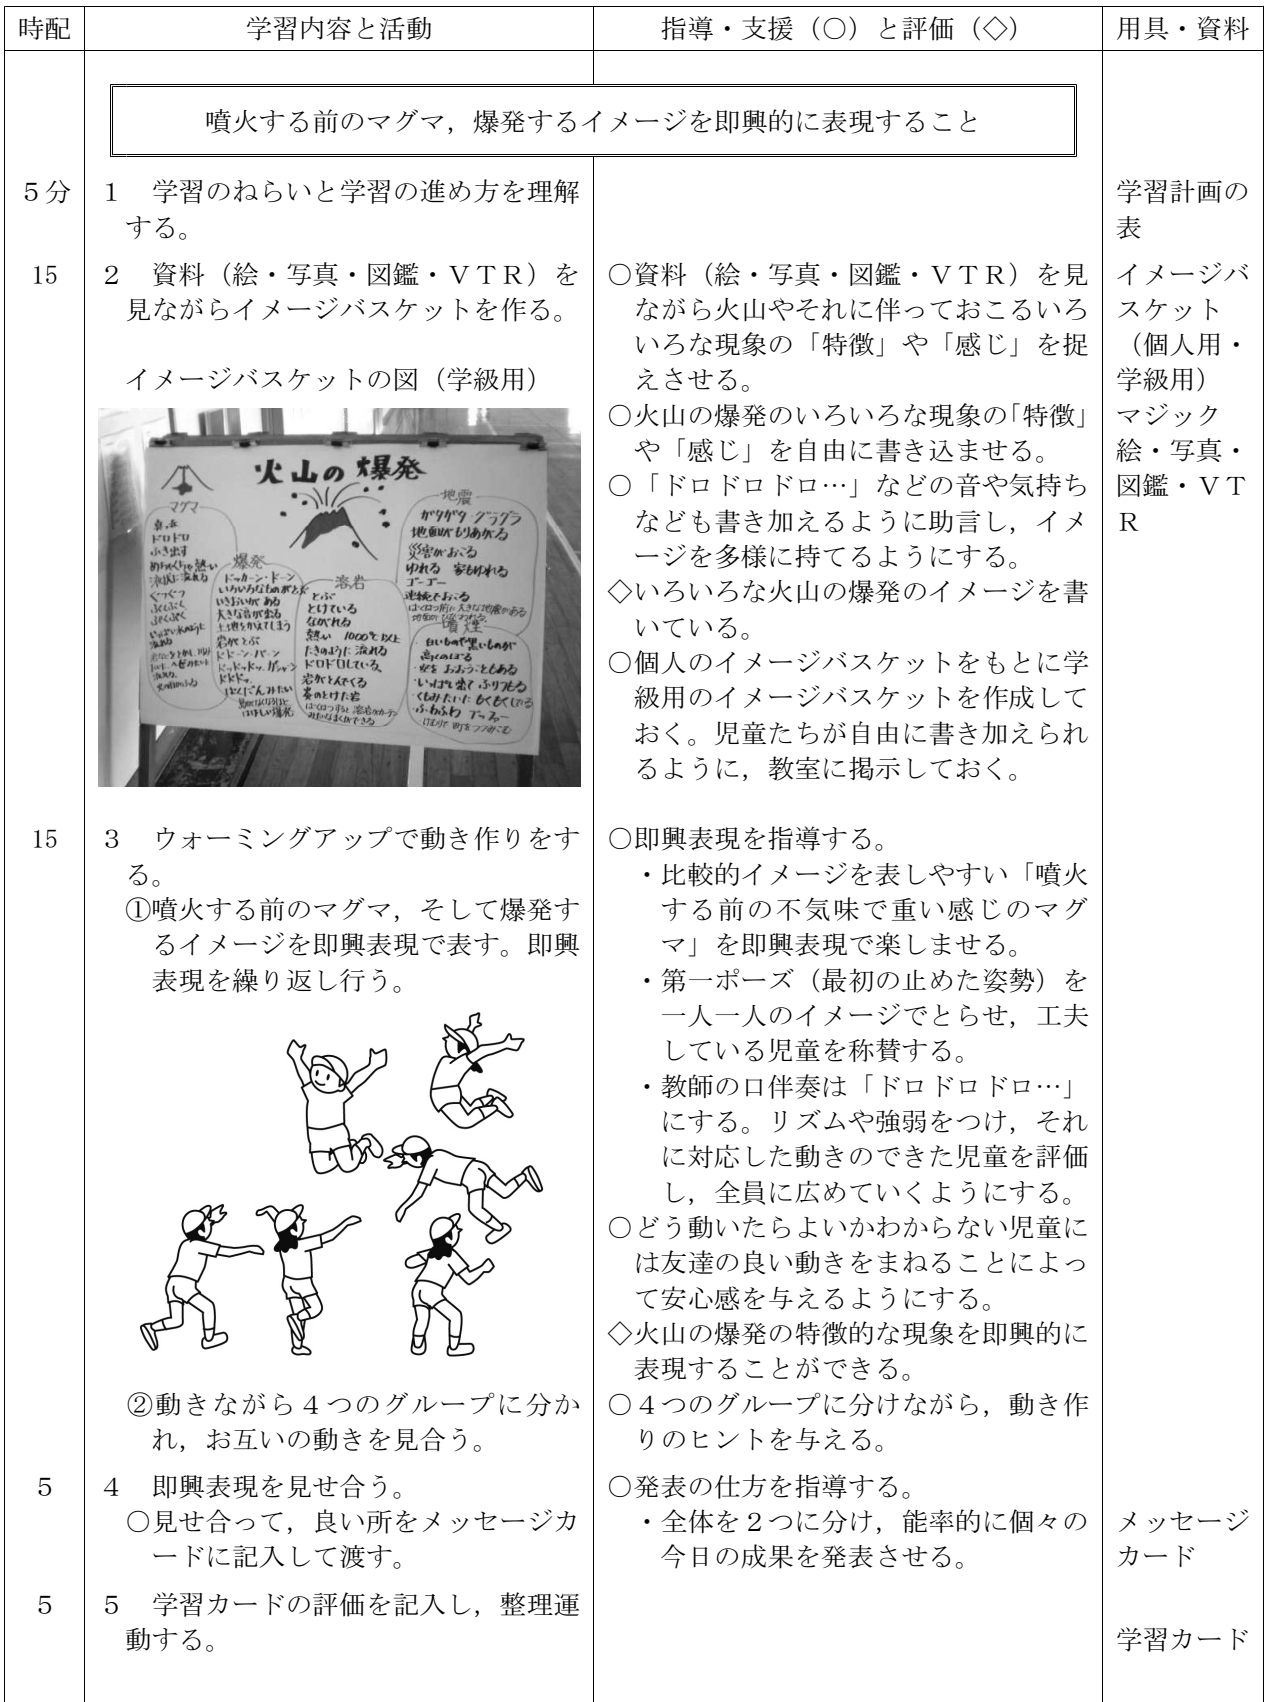 時配
学習内容と活動
指導・支援（○）と評価（◇）
用具・資料
噴火する前のマグマ，爆発するイメージを即興的に表現すること
５分
１　学習のねらいと学習の進め方を理解
する。
学習計画の
表
15
２　資料（絵・写真・図鑑・ＶＴＲ）を
見ながらイメージバスケットを作る。
イメージバスケットの図（学級用）
火山の爆発
マグマ
ドロドロ
ふき出す
爆発
ドッカーン・ドーン
いきおいがある
大きな音が出る
土地をかえてしまう
岩がとぶ
ドドーン・バーン
溶岩
とぶ
とけている
ながれる
熱い 1000℃以上
たきのように流れる
ドロドロしている。
岩がとんでくる
地震
ガタガタ・グラグラ
地面がもりあがる
災害がおこる
ゆれる 家もゆれる
ゴーゴー
連続でおこる
噴煙
白いものや黒いものが
高くのぼる
・空をおおうこともある
・いっぱい出て ふりつもる
・くもみたいにもくもくしてる
○資料（絵・写真・図鑑・ＶＴＲ）を見
ながら火山やそれに伴っておこるいろ
いろな現象の「特徴」や「感じ」を捉
えさせる。
○火山の爆発のいろいろな現象の「特徴」
や「感じ」を自由に書き込ませる。
○「ドロドロドロ…」などの音や気持ち
なども書き加えるように助言し，イメ
ージを多様に持てるようにする。
◇いろいろな火山の爆発のイメージを書
いている。
○個人のイメージバスケットをもとに学
級用のイメージバスケットを作成して
おく。児童たちが自由に書き加えられ
るように，教室に掲示しておく。
イメージバ
スケット
（個人用・
学級用）
マジック
絵・写真・
図鑑・ＶＴ
Ｒ
15
３　ウォーミングアップで動き作りをす
る。
①噴火する前のマグマ，そして爆発す
るイメージを即興表現で表す。即興
表現を繰り返し行う。
②動きながら４つのグループに分か
れ，お互いの動きを見合う。
○即興表現を指導する。
・比較的イメージを表しやすい「噴火
する前の不気味で重い感じのマグ
マ」を即興表現で楽しませる。
・第一ポーズ（最初の止めた姿勢）を
一人一人のイメージでとらせ，工夫
している児童を称賛する。
・教師の口伴奏は「ドロドロドロ…」
にする。リズムや強弱をつけ，それ
に対応した動きのできた児童を評価
し，全員に広めていくようにする。
○どう動いたらよいかわからない児童に
は友達の良い動きをまねることによっ
て安心感を与えるようにする。
◇火山の爆発の特徴的な現象を即興的に
表現することができる。
○４つのグループに分けながら，動き作
りのヒントを与える。
５
４　即興表現を見せ合う。
○見せ合って，良い所をメッセージカ
ードに記入して渡す。
○発表の仕方を指導する。
・全体を２つに分け，能率的に個々の
今日の成果を発表させる。
メッセージ
カード
５
５　学習カードの評価を記入し，整理運
動する。
学習カード